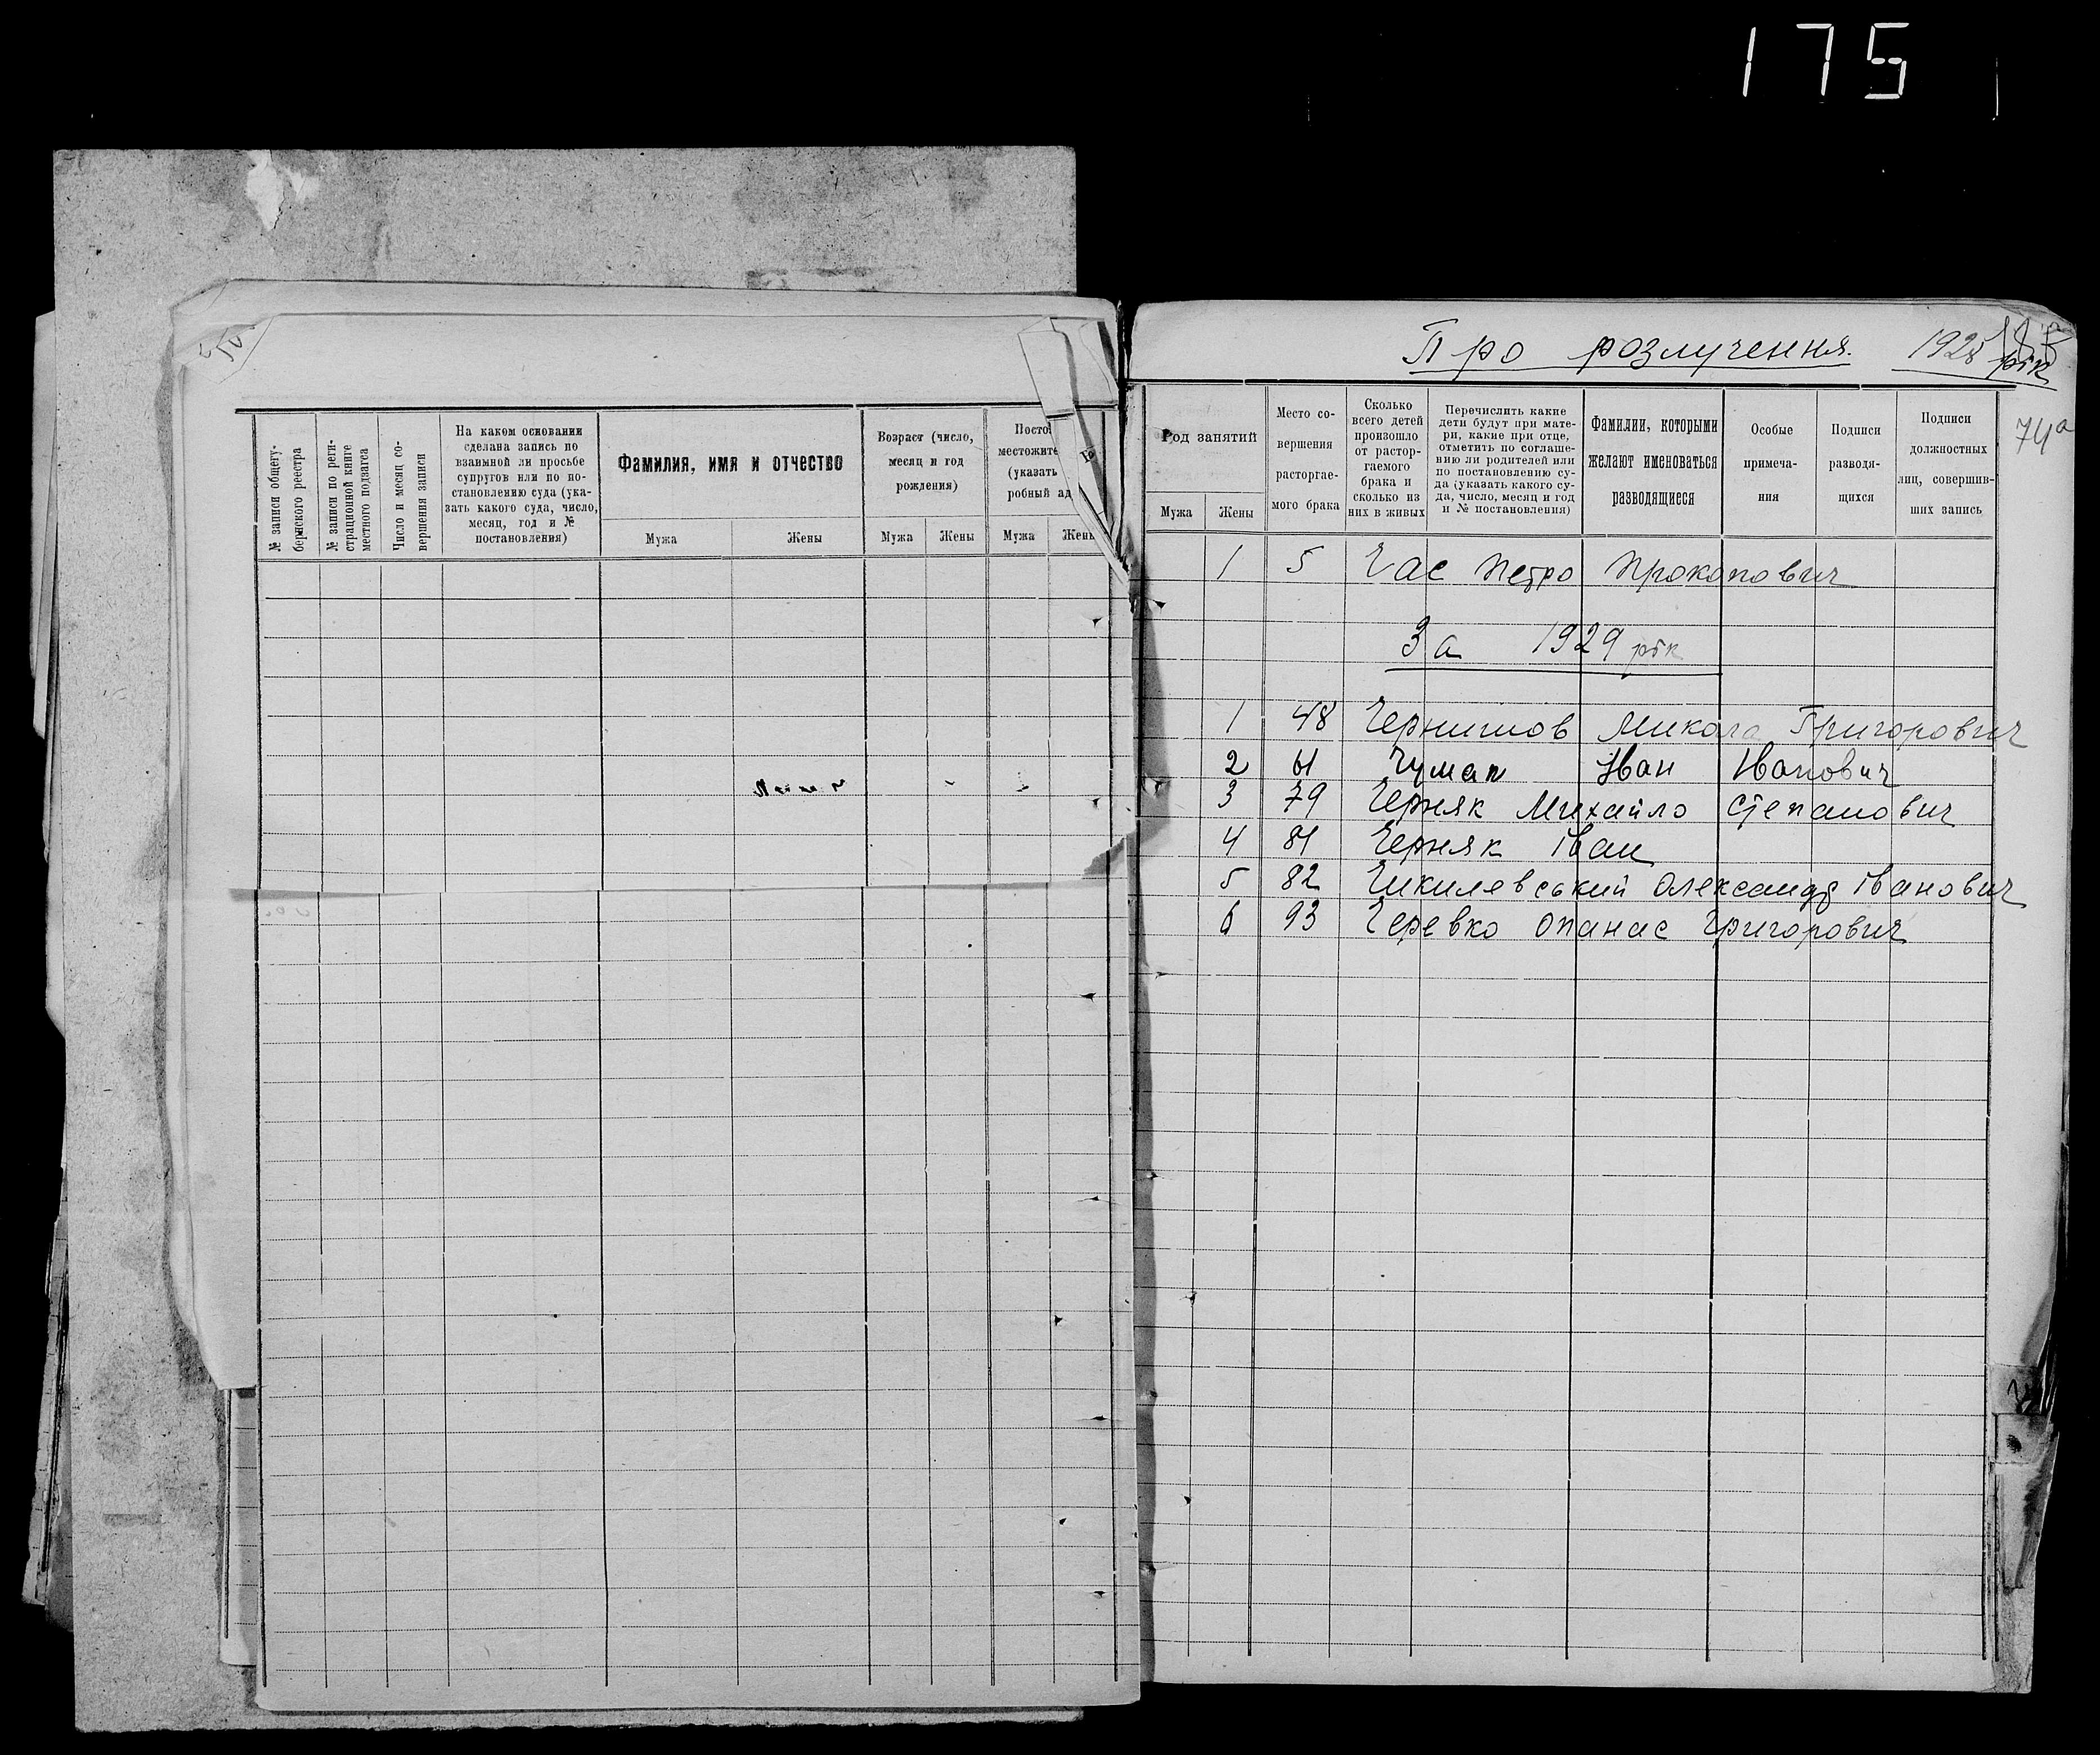 175
№ записи общегу-
бернского реестра
№ записи по реги-
страционной книге
местного подзагса
Число и месяц со-
вершения записи
На каком основании
сделана запись по
взаимной ли просьбе
супругов или по по-
становлению суда (ука-
зать какого суда, число,
месяц, год и №
постановления)
Фамилия, имя и отчество
Мужа Жены
Возраст (число,
месяц и год
рождения)
Мужа Жены
местожите
(указать
робный ад
Мужа
Про розлучення. 1928 рік
74а
Род занятий
Мужа Жены
Место со-
вершения
расторгае-
мого брака
Сколько
всего детей
произошло
от растор-
гаемого
брака и
сколько из
них в живых
Перечислить какие
дети будут при мате-
ри, какие при отце,
отметить по соглаше-
нию ли родителей или
по постановлению су-
да (указать какого су-
да, число, месяц и год
и № постановления)
Фамилии, которыми
желают именоваться
разводящиеся
Особые
примеча-
ния
Подписи
разводя-
щихся
Подписи
должностных
лиц, совершив-
ших запись
1 5 Час Петро Прокопович
За 1929 рік
1 48 Чернишов Микола Григорович
2 61 Чумак Іван Іванович
3 79 Черняк Михайло Степанович
4 81 Черняк Іван
5 82 Чикилевський Олександр Іванович
6 93 Черевко Опанас Григорович